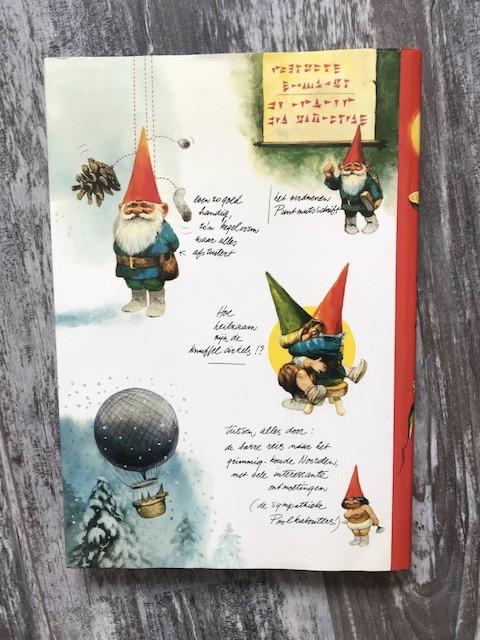 even zo goed
handig,
zo'n kegelvorm
waar alles
afstuitert
het verdwenen
Puntmutsschrift
Hoe
heilzaam
zijn de
knuffel cirkels!?
tussen alles door:
de barre reis naar het
grimmig-koude Noorden,
met hele interessante
ontmoetingen
(de sympathieke
Poolkabouters!)